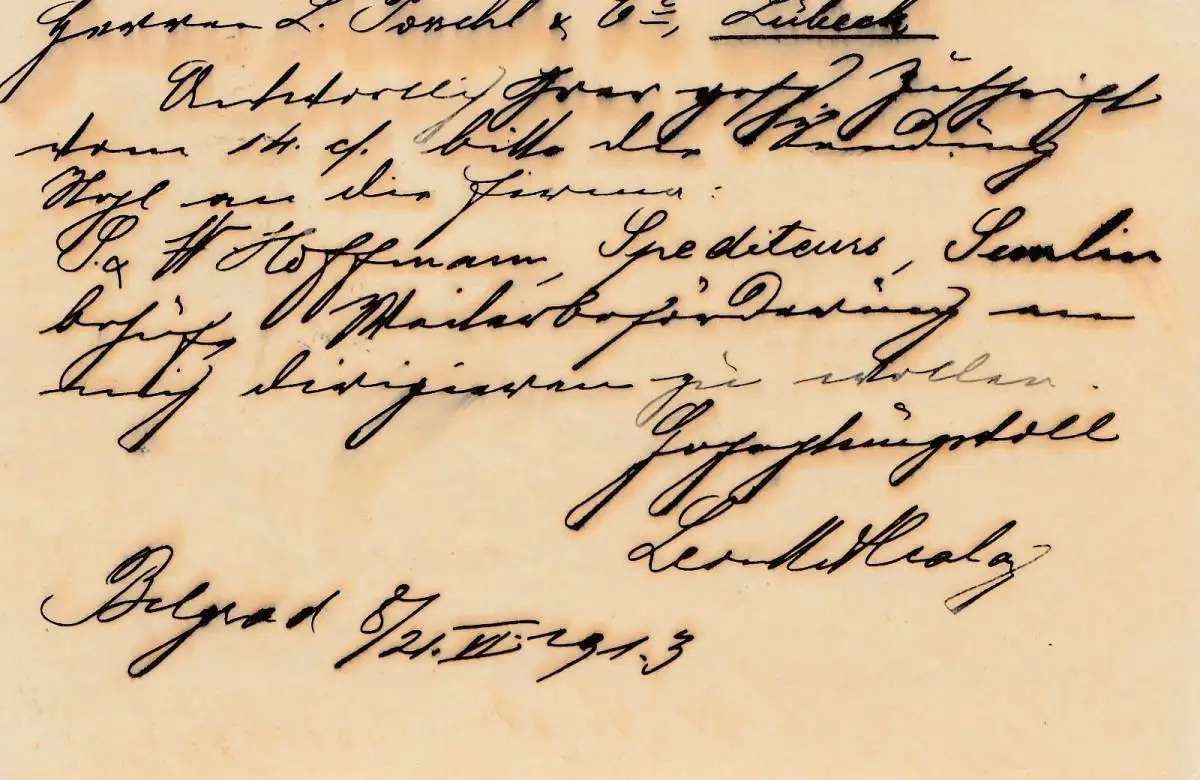 Herren L. Possehl & Co, Lübeck
Antwortlich Ihrer gesch Zuschrift
vom 14. d. bitte die Sendung
an die Firma:
S. & W Hoffmann, Spediteurs, Semlin
behufs Weiterbeförderung an
mich dirigieren zu wollen.
Hochachtungsvoll
Leon
Belgrad 8/21. VI. 1913